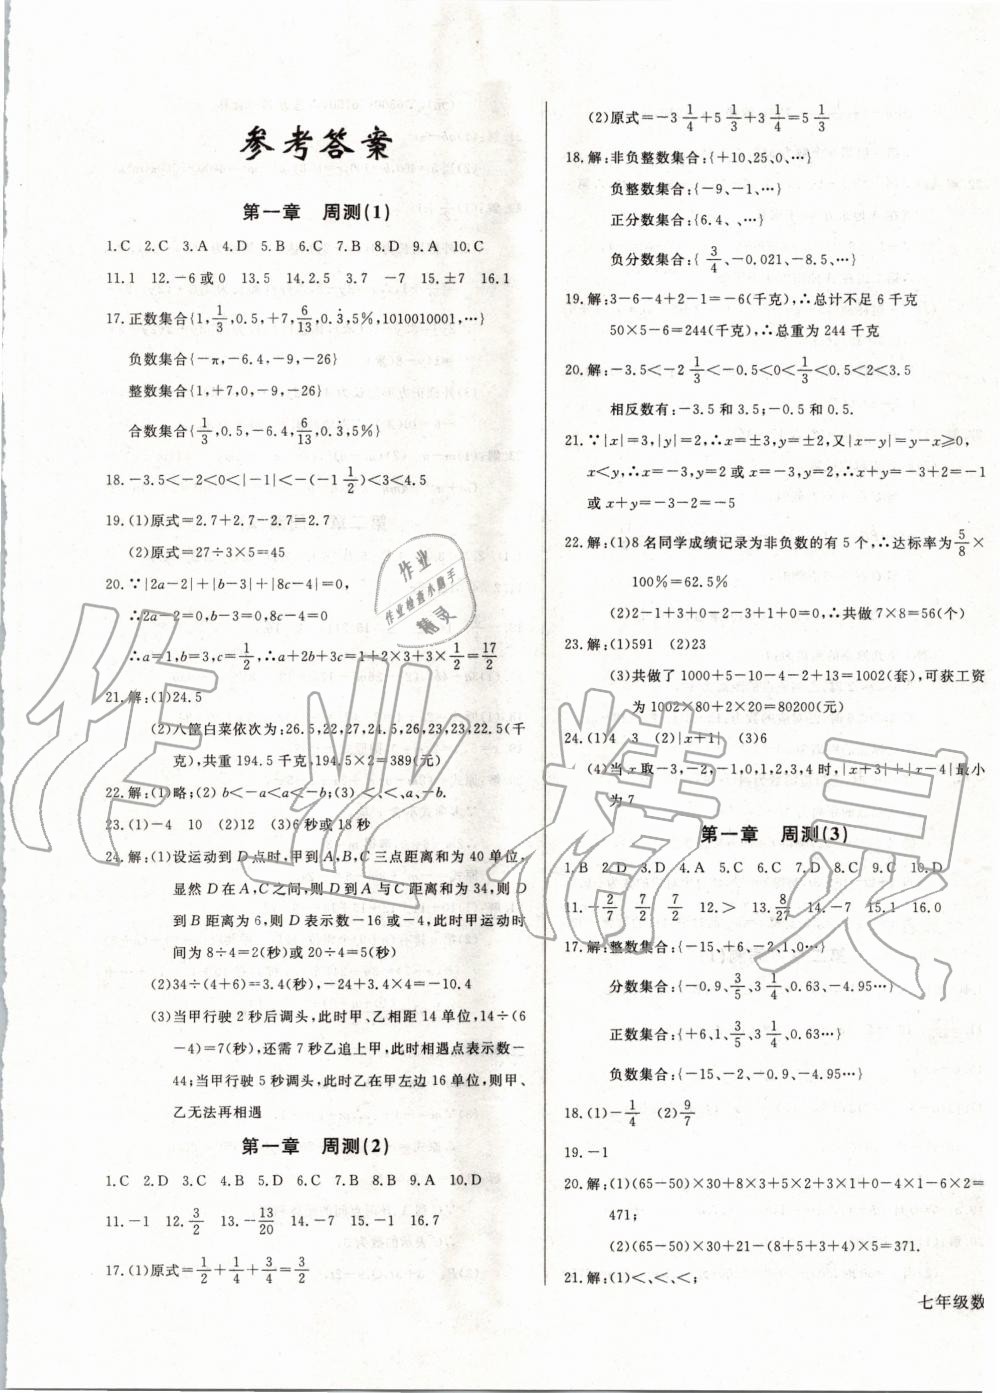 参考答案
第一章 周测(1)
1.C 2.C 3.A 4.D 5.B 6.C 7.B 8.D 9.A 10.C
11.1 12.-6或0 13.5 14.2.5 3.7 -7 15.±7 16.1
17.正数集合{1,1/3,0.5,+7,6/13,0.3̇,5%,1010010001,…}
负数集合{-π,-6.4,-9,-26}
整数集合{1,+7,0,-9,-26}
合数集合{1/3,0.5,-6.4,6/13,0.3̇,5%}
18.-3.5<-2<0<|-1|<-(-1 1/2)<3<4.5
19.(1)原式=2.7+2.7-2.7=2.7
(2)原式=27÷3×5=45
20.∵|2a-2|+|b-3|+|8c-4|=0,
∴2a-2=0,b-3=0,8c-4=0
∴a=1,b=3,c=1/2,∴a+2b+3c=1+2×3+3×1/2=17/2
21.解:(1)24.5
(2)六筐白菜依次为:26.5,22,27,24.5,26,23,23,22.5(千
克),共重194.5千克,194.5×2=389(元)
22.解:(1)略;(2)b<-a<a<-b;(3)<、<、a、-b.
23.(1)-4 10 (2)12 (3)6秒或18秒
24.解:(1)设运动到D点时,甲到A,B,C三点距离和为40单位,
显然D在A,C之间,则D到A与C距离和为34,则D
到B距离为6,则D表示数-16或-4,此时甲运动时
间为8÷4=2(秒)或20÷4=5(秒)
(2)34÷(4+6)=3.4(秒),-24+3.4×4=-10.4
(3)当甲行驶2秒后调头,此时甲、乙相距14单位,14÷(6
-4)=7(秒),还需7秒乙追上甲,此时相遇点表示数-
44;当甲行驶5秒调头,此时乙在甲左边16单位,则甲、
乙无法再相遇
第一章 周测(2)
1.C 2.D 3.A 4.B 5.D 6.C 7.B 8.B 9.A 10.D
11.-1 12.3/2 13.-13/20 14.-7 15.-1 16.7
17.(1)原式=1/2+1/4+3/4=3/2
(2)原式=-3 1/4+5 1/3+3 1/4=5 1/3
18.解:非负整数集合:{+10,25,0、…}
负整数集合:{-9、-1、…}
正分数集合:{6.4、、…}
负分数集合:{ 3/4、-0.021、-8.5、…}
19.解:3-6-4+2-1=-6(千克),∴总计不足6千克
50×5-6=244(千克),∴总重为244千克
20.解:-3.5<-2 1/2<-0.5<0<1/2<0.5<2<3.5
相反数有:-3.5和3.5;-0.5和0.5.
21.∵|x|=3,|y|=2,∴x=±3,y=±2,又|x-y|=y-x≥0,
x<y,∴x=-3,y=2或x=-3,y=-2,∴x+y=-3+2=-1
或x+y=-3-2=-5
22.解:(1)8名同学成绩记录为非负数的有5个,∴达标率为5/8×
100%=62.5%
(2)2-1+3+0-2-3+1+0=0,∴共做7×8=56(个)
23.解:(1)591 (2)23
(3)共做了1000+5-10-4-2+13=1002(套),可获工资
为1002×80+2×20=80200(元)
24.(1)4 3 (2)|x+1| (3)6
(4)当x取-3,-2,-1,0,1,2,3,4时,|x+3|+|x-4|最小
为7
第一章 周测(3)
1.B 2.D 3.D 4.A 5.C 6.C 7.C 8.C 9.C 10.D
11.-2/7 7/2 7/2 12.> 13.8/27 14.-7 15.1 16.0
17.解:整数集合:{-15、+6、-2、1、0…}
分数集合:{-0.9、3/5、3 1/4、0.63、-4.95…}
正数集合:{+6、1、3/5、3 1/4、0.63…}
负数集合:{-15、-2、-0.9、-4.95…}
18.(1)-1/4 (2)9/7
19.-1
20.解:(1)(65-50)×30+8×3+5×2×1+0-4×1-6×2=
471;
(2)(65-50)×30+21-(8+5+3+4)×5=371.
21.解:(1)<、<、<;
七年级数
作业
作业检查小助手
精灵
作业精灵